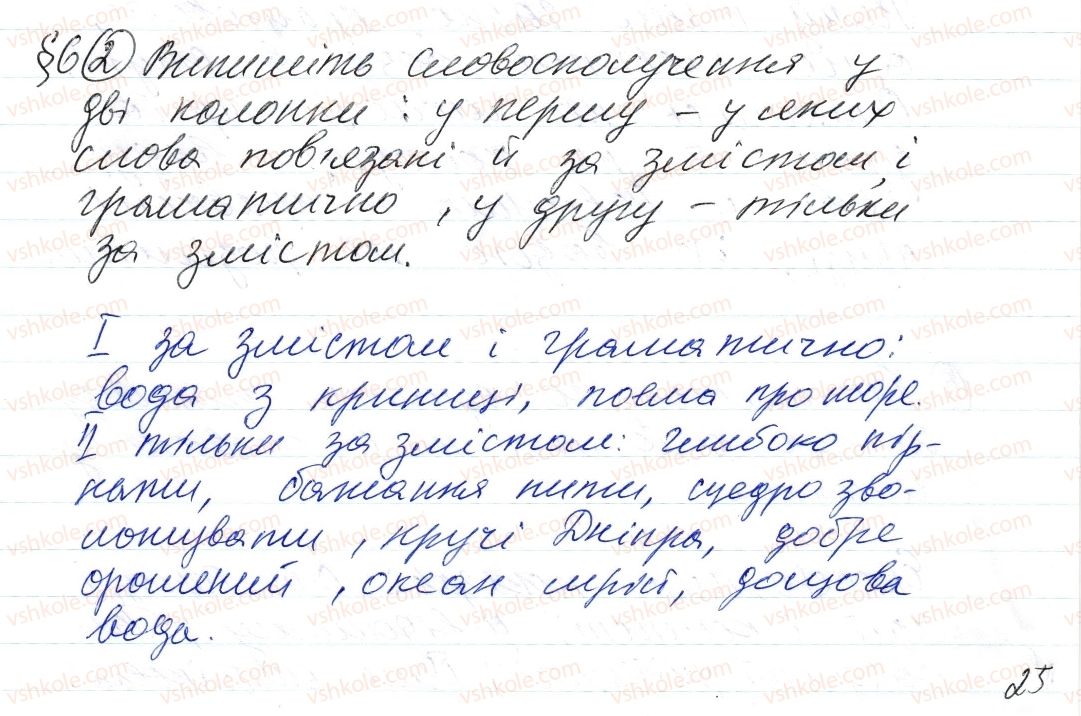 §6 2 Випишіть словосполучення у
дві колонки: у першу – у яких
слова пов'язані й за змістом, і
граматично, у другу – тільки
за змістом.
I за змістом і граматично:
вода з криниці, повма про море.
II тільки за змістом: глибоко пір-
нати, бажання пити, щедро зво-
ложувати, кручі Дніпра, добре
орошений, океан мрій, дощова
вода.
25